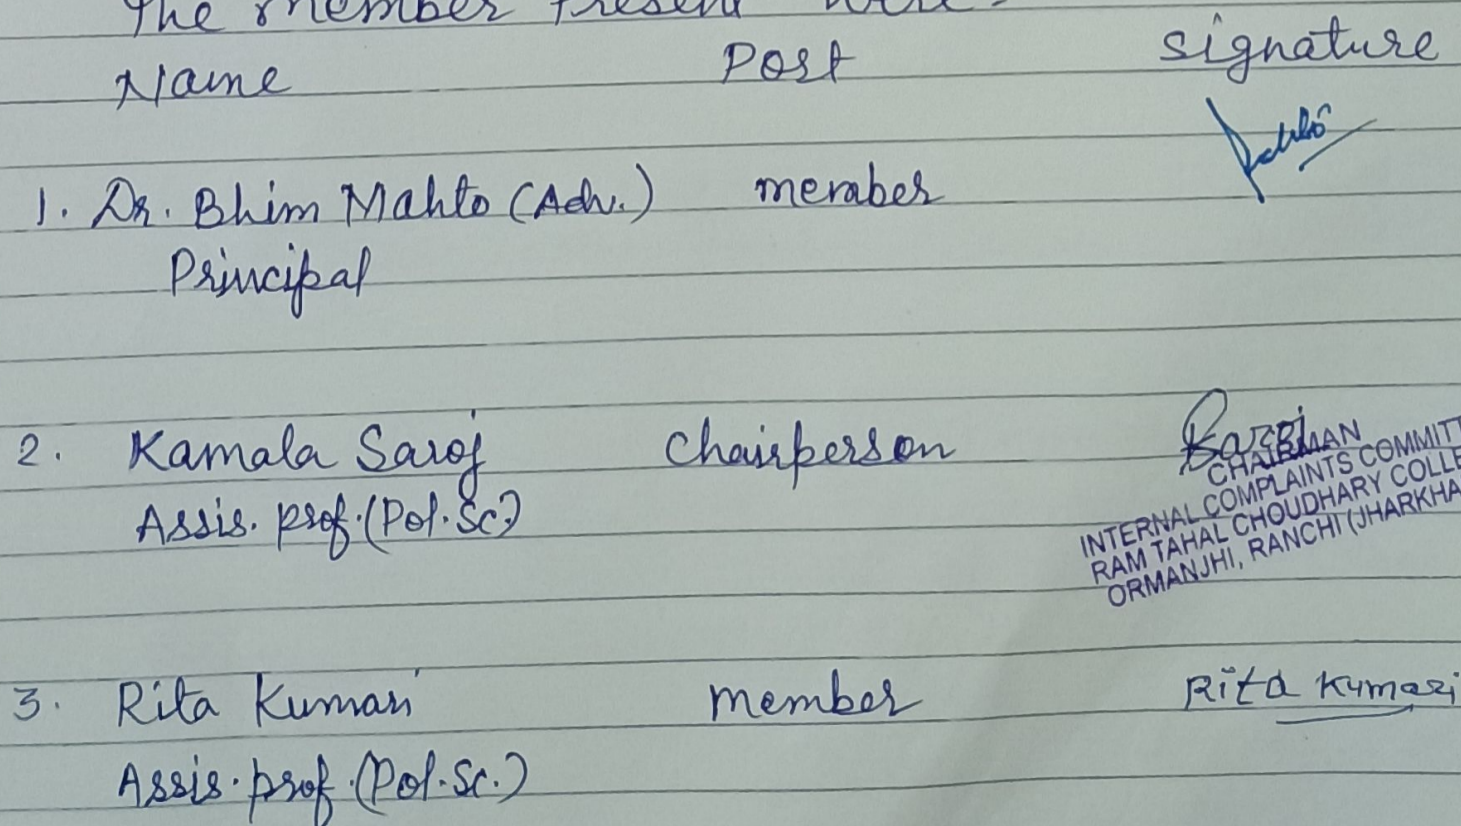 The member Present were
Name Post signature
1. Dr. Bhim Mahto (Adv.) member
Principal
2. Kamala Saroj Chairperson Saroj
CHAIRMAN
INTERNAL COMPLAINTS COMMITT
RAM TAHAL CHOUDHARY COLLE
ORMANJHI, RANCHI (JHARKHA
Assis. prof. (Pol. Sc.)
3. Rita Kumari member Rita Kumari
Assis. prof. (Pol. Sc.)